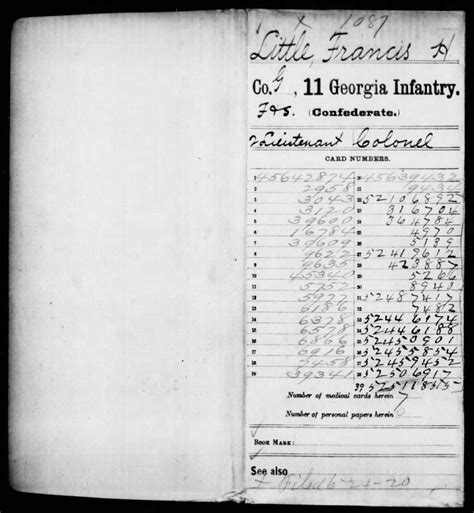 1 x 1087
Little, Francis H
Co. G, 11 Georgia Infantry.
F&S. (Confederate.)
Lieutenant Colonel
CARD NUMBERS.
1 45642874 20 45639432
2 2958 21 9434
3 3043 22 52106892
4 3120 23 316704
5 39600 24 364784
6 16784 25 4970
7 39609 26 5139
8 9622 27 52419612
9 9635 28 423887
10 45340 29 5266
11 5752 30 8940
12 5977 31 52487417
13 6186 32 7482
14 6328 33 52446174
15 6578 34 52446188
16 6866 35 52450901
17 6916 36 52455854
18 7458 37 52459452
19 39341 38 52506917
39 52511855
Number of medical cards herein 7
Number of personal papers herein 6
BOOK MARK:
See also
Filed 6-24-20